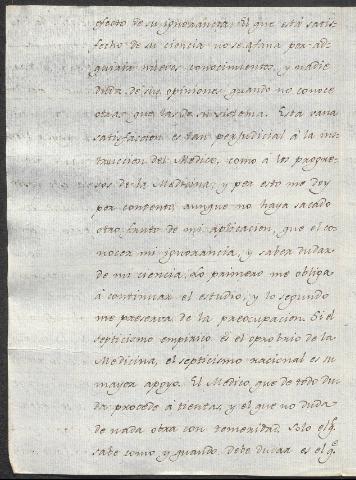 efecto de su ignorancia. El que está satis-
fecho de su ciencia no se afana por ad-
quirir nuevos conocimientos, y nadie
duda de sus opiniones, quando no conoce
otras que las de su sistema. Esta vana
satisfaccion es tan perjudicial à la ins-
truccion del Medico, como a los progre-
sos de la Medicina, y por esto me doy
por contento, aunque no haya sacado
otro fruto de mi aplicacion, que el co-
nocer mi ignorancia, y saber dudar
de mi ciencia. Lo primero me obliga
à continuar el estudio, y lo segundo
me preserva de la preocupacion. Si el
septicismo empirico es el oprobrio de la
Medicina, el septicismo racional es su
mayor apoyo. El Medico, que de todo du-
da procede à tientas, y el que no duda
de nada obra con temeridad. Solo el q.e
sabe como y quando debe dudar es el q.e